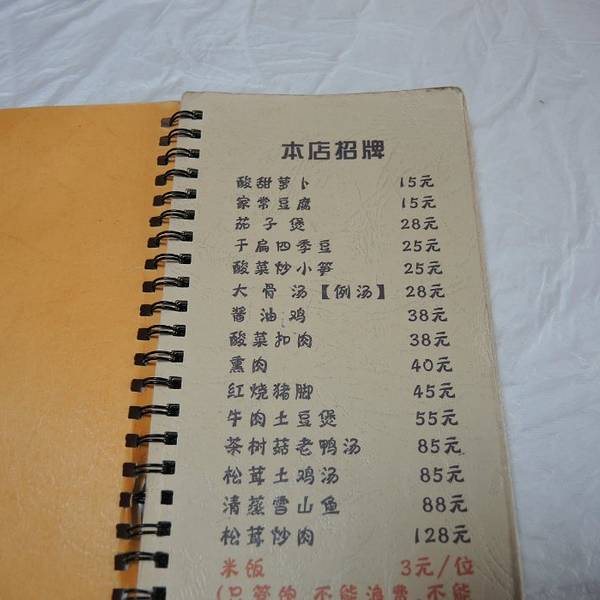 本店招牌
酸甜萝卜 15元
家常豆腐 15元
茄子煲 28元
干扁四季豆 25元
酸菜炒小笋 25元
大骨汤【例汤】 28元
酱油鸡 38元
酸菜扣肉 38元
熏肉 40元
红烧猪脚 45元
牛肉土豆煲 55元
茶树菇老鸭汤 85元
松茸土鸡汤 85元
清蒸雪山鱼 88元
松茸炒肉 128元
米饭 3元/位
(只管饱,不能浪费,不能